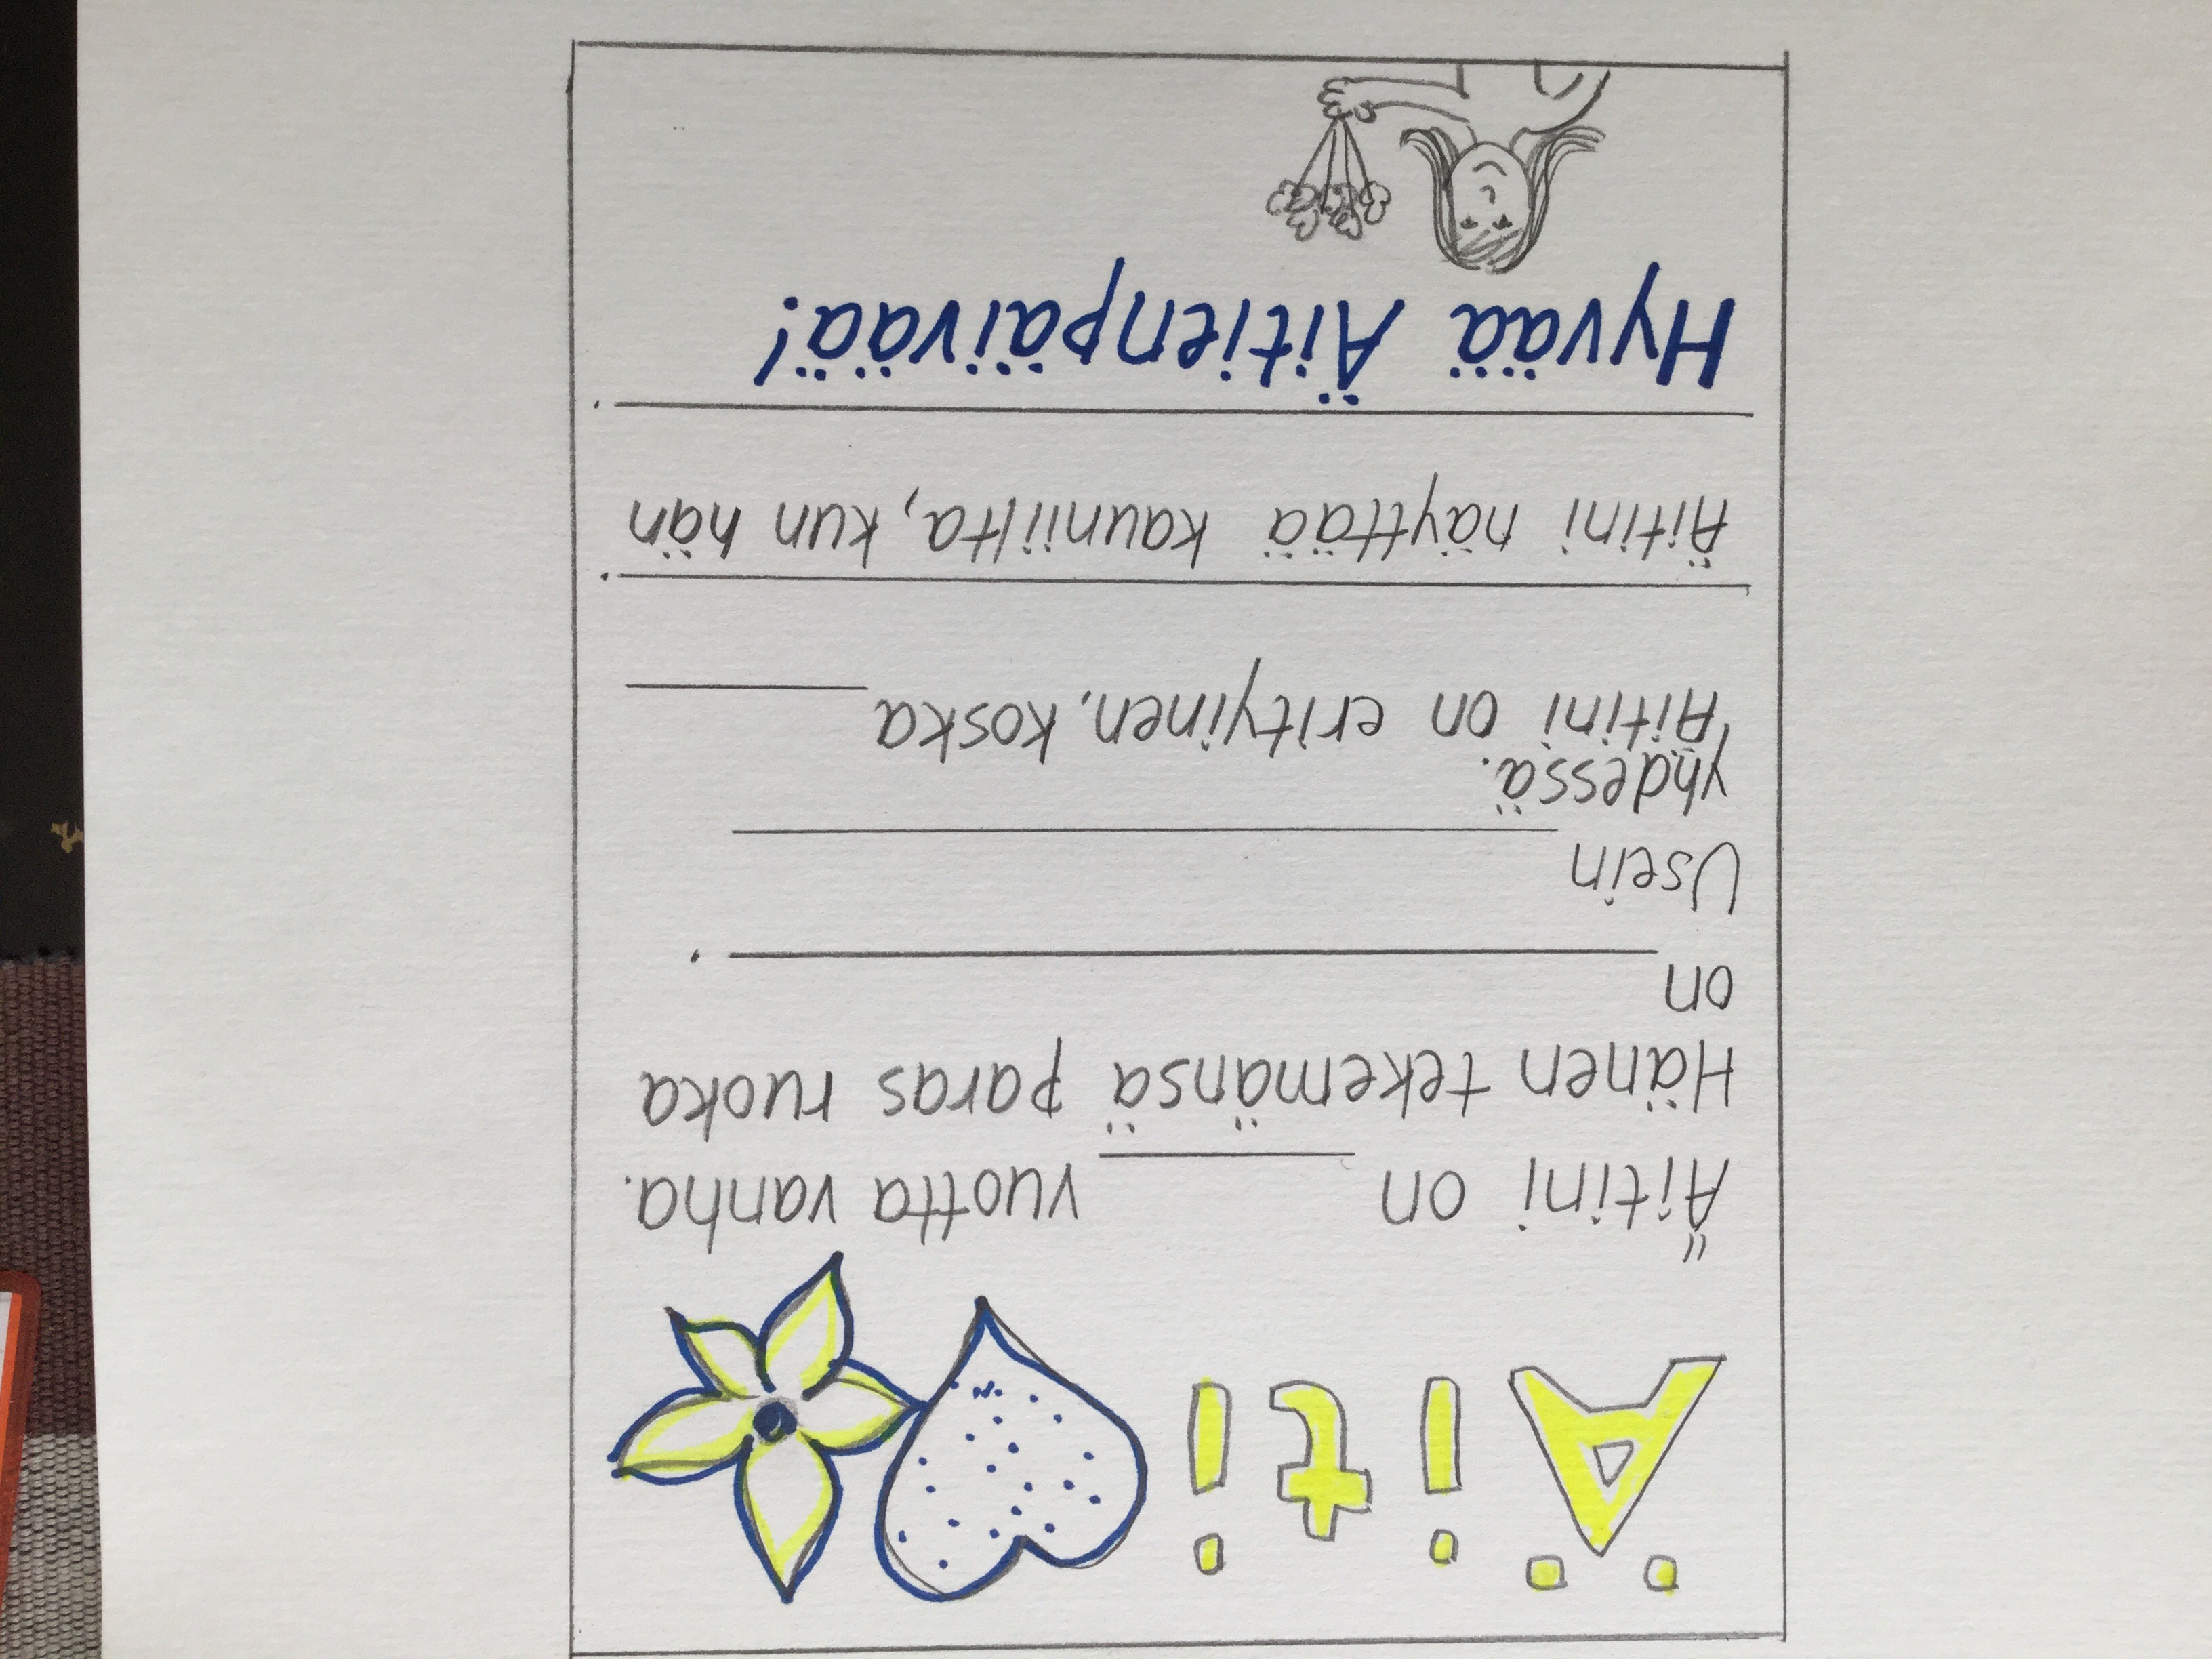 Äiti
Äitini on ________ vuotta vanha.
Hänen tekemänsä paras ruoka
on ________.
Usein ________
yhdessä.
Äitini on erityinen, koska ________
________.
Äitini näyttää kauniilta, kun hän
________.
Hyvää Äitienpäivää!